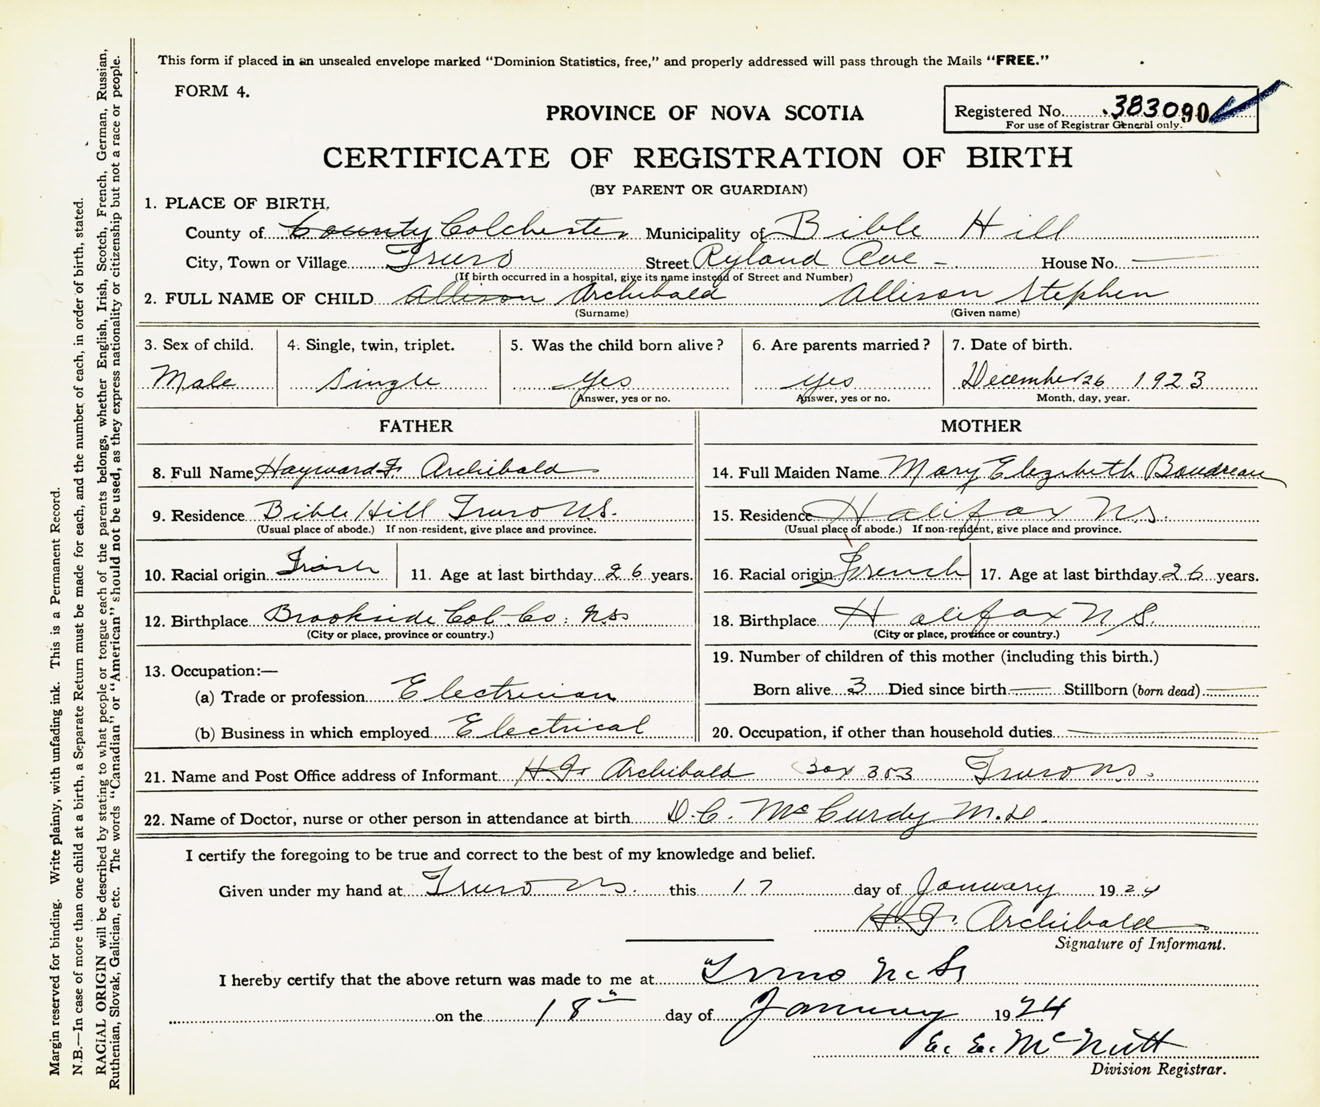 This form if placed in an unsealed envelope marked "Dominion Statistics, free," and properly addressed will pass through the Mails "FREE."
FORM 4.
PROVINCE OF NOVA SCOTIA
Registered No. 383090
For use of Registrar General only.
CERTIFICATE OF REGISTRATION OF BIRTH
(BY PARENT OR GUARDIAN)
1. PLACE OF BIRTH.
County of County Colchester Municipality of Bible Hill
City, Town or Village Truro Street Ryland Ave - House No.
(If birth occurred in a hospital, give its name instead of Street and Number)
2. FULL NAME OF CHILD Allison Archibald Allison Stephen
(Surname) (Given name)
3. Sex of child. 4. Single, twin, triplet. 5. Was the child born alive? 6. Are parents married? 7. Date of birth.
Male Single Yes Yes December 26 1923
Answer, yes or no. Answer, yes or no. Month, day, year.
FATHER MOTHER
8. Full Name Hayward F. Archibald 14. Full Maiden Name Mary Elizibeth Boudreau
9. Residence Bible Hill Truro N.S. 15. Residence Halifax N.S.
(Usual place of abode.) If non-resident, give place and province. (Usual place of abode.) If non-resident, give place and province.
10. Racial origin Irish 11. Age at last birthday 26 years. 16. Racial origin French 17. Age at last birthday 26 years.
12. Birthplace Brookside Col. Co. N.S. 18. Birthplace Halifax N.S.
(City or place, province or country.) (City or place, province or country.)
13. Occupation:— 19. Number of children of this mother (including this birth.)
(a) Trade or profession Electrician Born alive 3 Died since birth Stillborn (born dead)
(b) Business in which employed Electrical 20. Occupation, if other than household duties
21. Name and Post Office address of Informant H.F. Archibald Box 303 Truro N.S.
22. Name of Doctor, nurse or other person in attendance at birth D.C. McCurdy M.D.
I certify the foregoing to be true and correct to the best of my knowledge and belief.
Given under my hand at Truro N.S. this 17 day of January 1924
H.F. Archibald
Signature of Informant.
I hereby certify that the above return was made to me at Truro N.S.
on the 18th day of January 1924
E. E. McNutt
Division Registrar.
Margin reserved for binding. Write plainly, with unfading ink. This is a Permanent Record.
N.B.—In case of more than one child at a birth, a Separate Return must be made for each, and the number of each, in order of birth, stated.
RACIAL ORIGIN will be described by stating to what people or tongue each of the parents belongs, whether English, Irish, Scotch, French, German, Russian,
Ruthenian, Slovak, Galician, etc. The words "Canadian" or "American" should not be used, as they express nationality or citizenship but not a race or people.